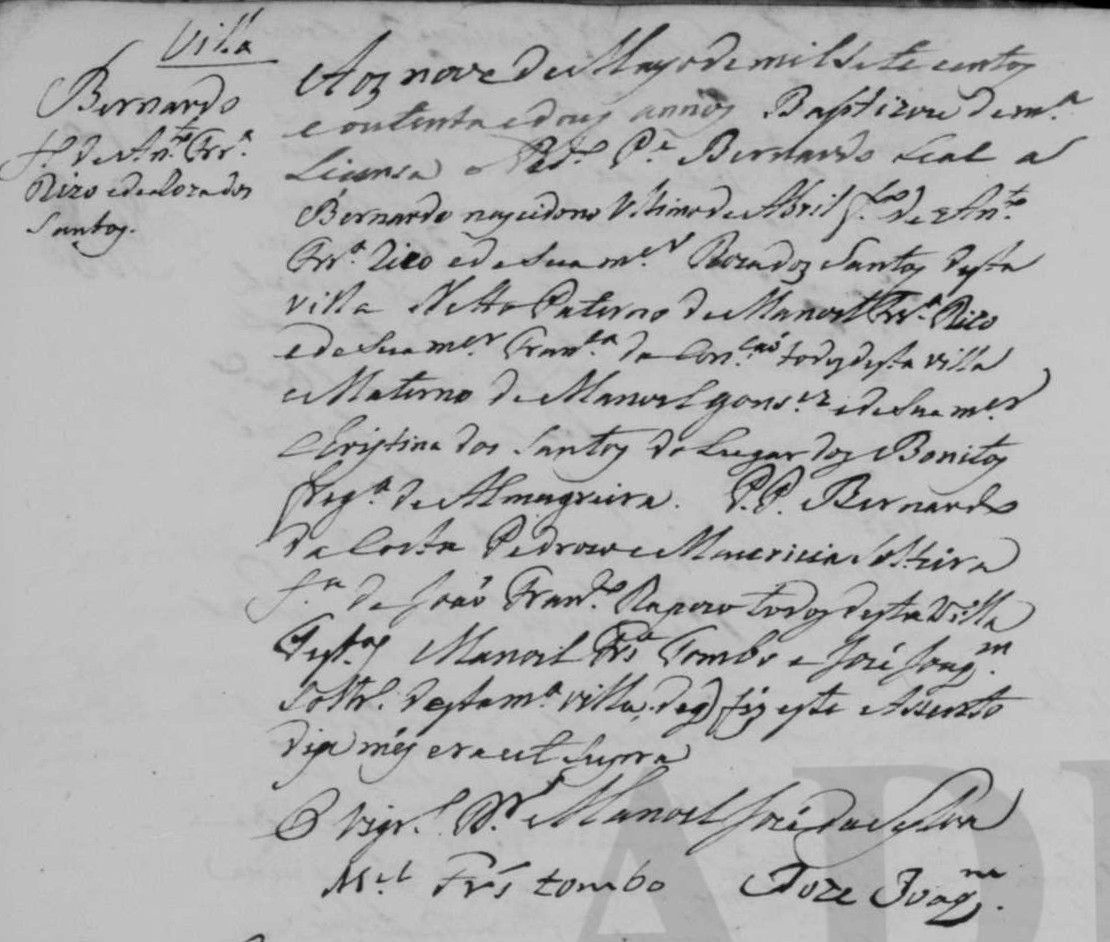 Villa
Bernardo
f.º de An.to Frr.ª
Rizo e de Roza dos
Santos.
Aos nove de Mayo de mil sete centos
e outenta e dous annos Baptizou de m.ª
Licensa o Rd.º P.e Bernardo Leal a
Bernardo nascido no Ultimo de Abril f.º de An.to
Frr.ª Rizo e de Sua m.er Roza dos Santos desta
villa Netto Paterno de Manoel Frr.ª Rizo
e de Sua m.er Fran.ca da Con.cão todos desta villa
e Materno de Manoel Gons.ez e de Sua m.er
Christina dos Santos do Lugar dos Bonitos
freg.ª de Almagreira. P.P. Bernardo
da Costa Pedrozo e Mauricia Solteira
f.ª de João Fran.co Rapozo todos desta Villa
Test.as Manoel Frz Tombo e José Joaq.m
Soltr.º desta m.ª villa, de q fiz este Assento
dia mês era ut Supra
O Vigr.º Manoel José da Sylva
M.el Frz tombo Joze Joaq.m
AD